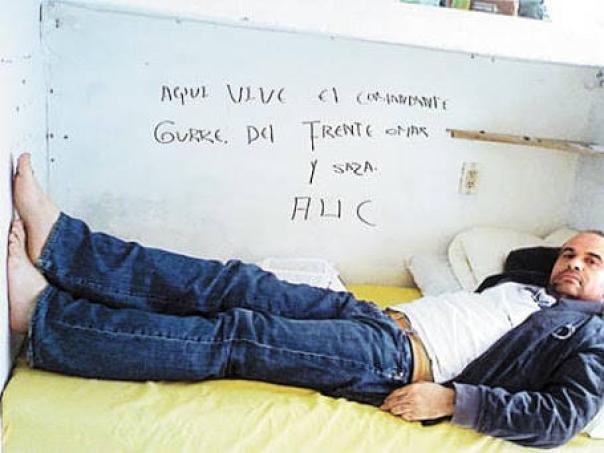 AQUI VIVE EL COMANDANTE
GURRE. DEL FRENTE OMAR
Y SAZA.
AUC